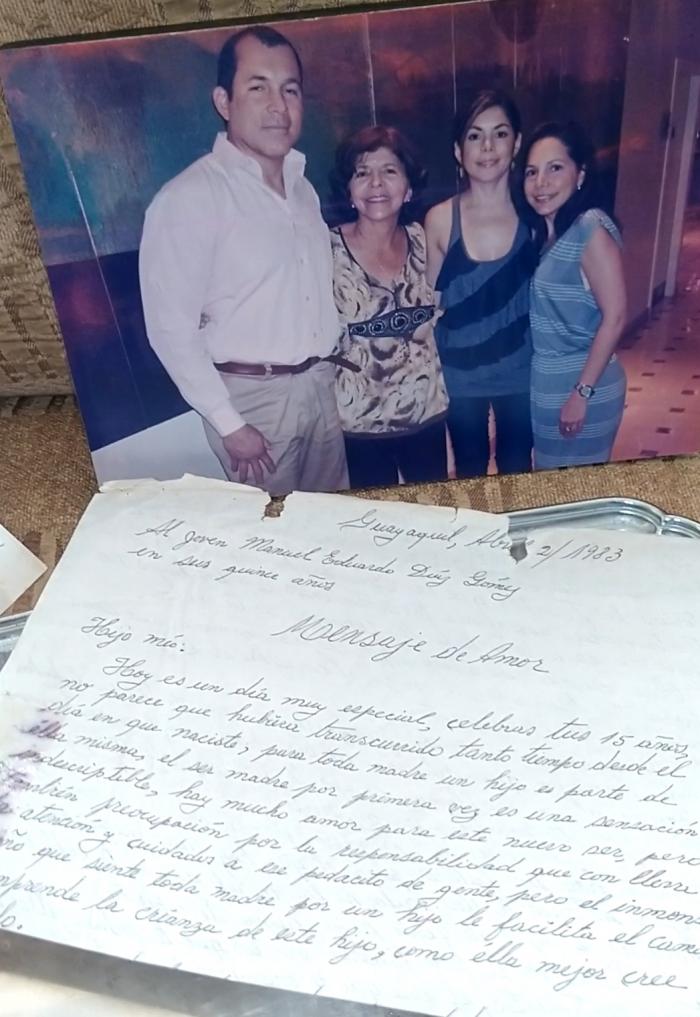 Guayaquil, Abril 2/1983
Al joven Manuel Eduardo Díaz Gómez
en sus quince años
Mensaje de Amor
Hijo mío:
Hoy es un día muy especial, celebras tus 15 años,
no parece que hubiera transcurrido tanto tiempo desde el
día en que naciste, para toda madre un hijo es parte de
ella misma, el ser madre por primera vez es una sensación
indescriptible, hay mucho amor para este nuevo ser, pero
también preocupación por la responsabilidad que con lleva
atención y cuidados a ese pedacito de gente, pero el inmen
que siente toda madre por un hijo le facilita el cam
mprende la crianza de este hijo, como ella mejor cree